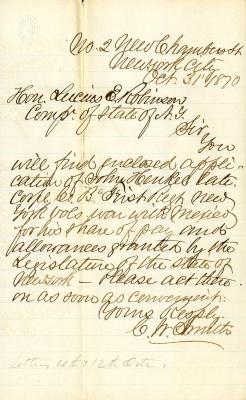 No. 2 New Chambers St.
New York City
Oct. 31st 1870
Hon. Lucius E. Robinson
Compr of State of N.Y.
Sir,
You
will find enclosed appli-
cation of John Henkel late
Corpl Co B. First Regt New
York Vols. war with Mexico
for his share of pay and
allowances granted by the
Legislature of the state of
New York — Please act there
on as soon as convenient.
Yours Resply
C. W. Smith
Letters 10th & 12th Octr.